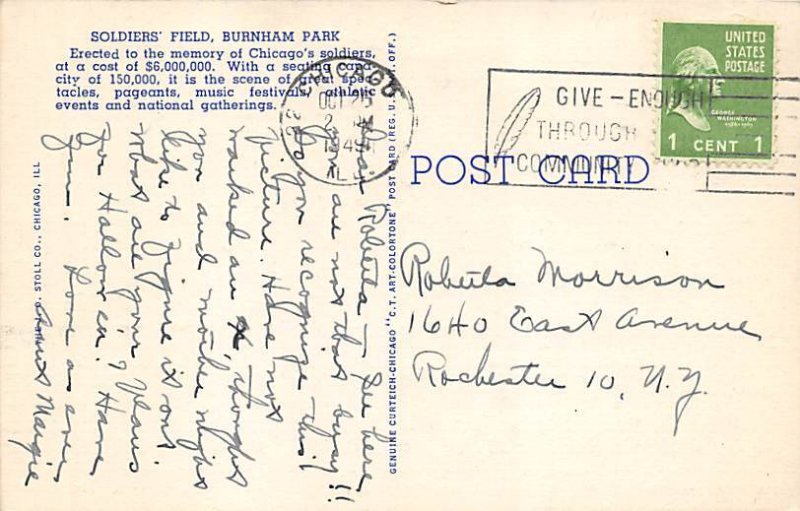 SOLDIERS' FIELD, BURNHAM PARK
Erected to the memory of Chicago's soldiers,
at a cost of $6,000,000. With a seating capa-
city of 150,000, it is the scene of great spec-
tacles, pageants, music festivals, athletic
events and national gatherings.
CHICAGO
OCT 25
2
1949
ILL.
GIVE - ENOUGH
THROUGH
COMMUNITY
UNITED
STATES
POSTAGE
GEORGE
WASHINGTON
1 CENT 1
POST CARD
Dear Roberta - See here,
you are not that busy!!
Do you recognize this
picture. Have not
marked an x, thought
you and mother might
like to figure it out.
What are your plans
for Hallowe'en? Have
fun. Love as ever
Aunt Margie
STOLL CO., CHICAGO, ILL
GENUINE CURTEICH-CHICAGO "C.T. ART-COLORTONE" POST CARD (REG. U.S. OFF.)
Roberta Morrison
1640 East Avenue
Rochester 10, N.Y.